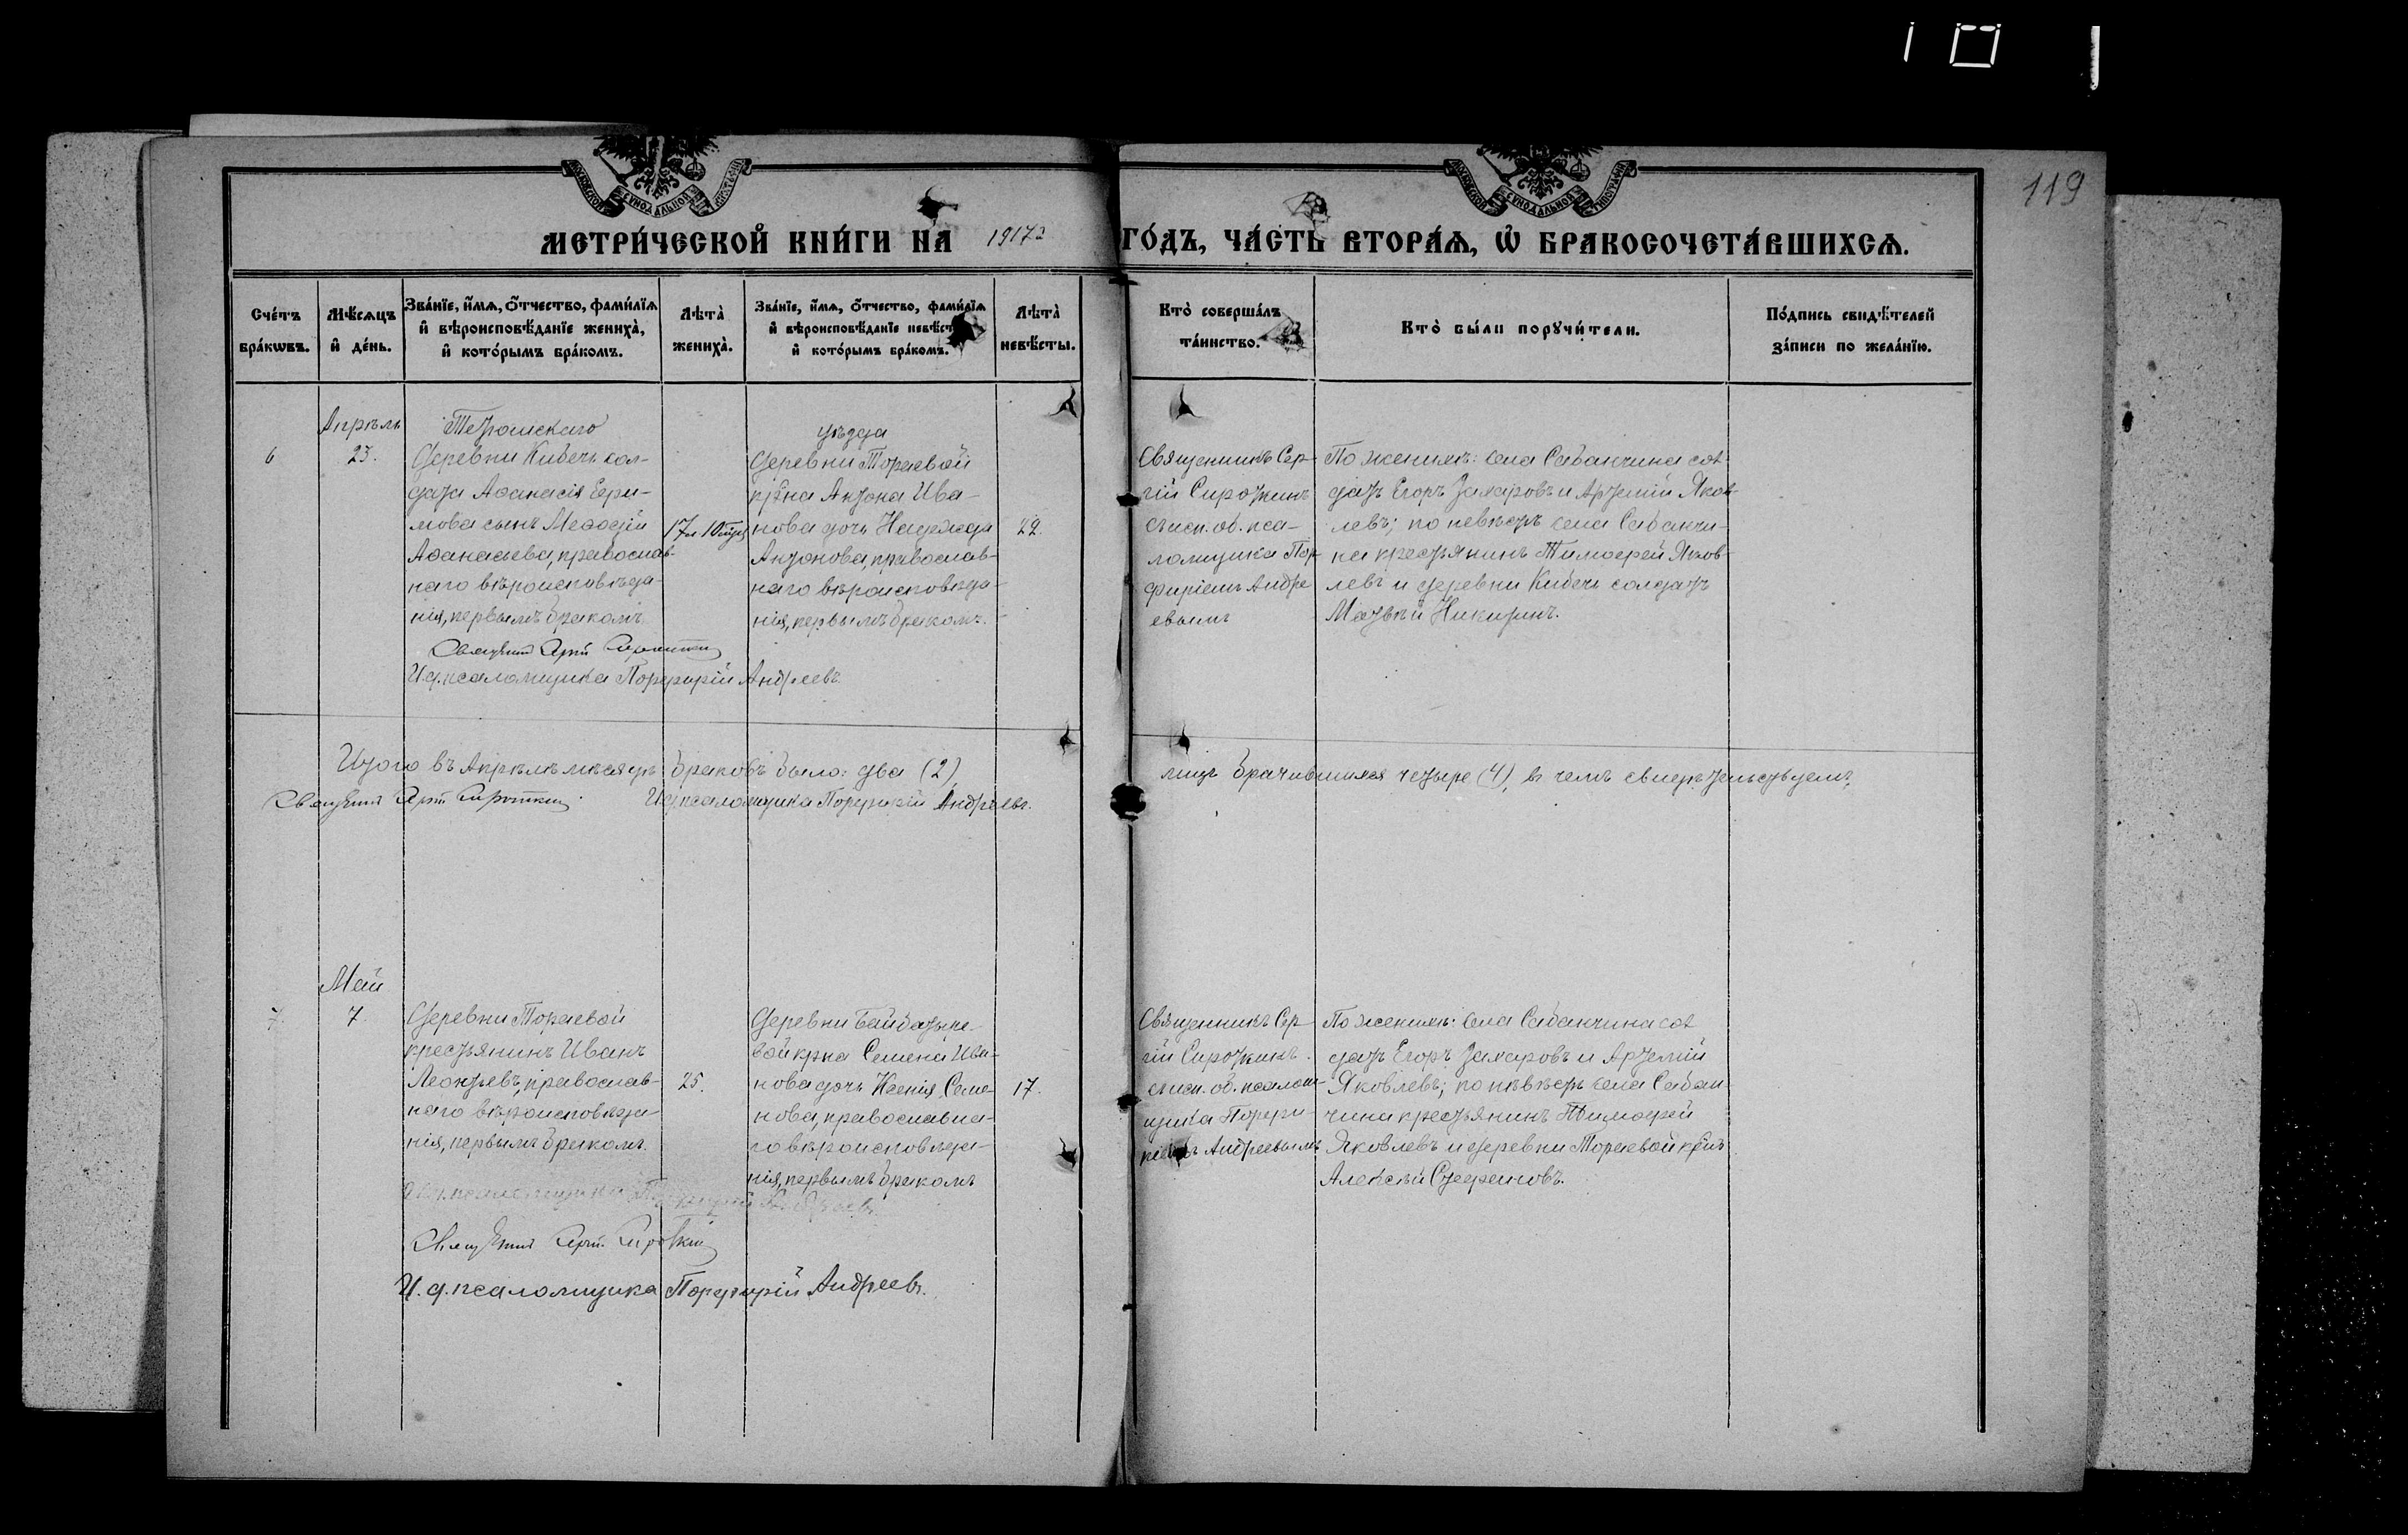 119
МЕТРИ́ЧЕСКОЙ КНИ́ГИ НА 1917 г ГО́ДЪ, ЧА́СТЬ ВТОРА́Ѧ, Ѽ БРАКОСОЧЕТА́ВШИХСѦ.
Сче́тъ бра́кѡвъ.
Мѣ́сѧцъ и҆ де́нь.
Зва́нїе, и҆́мѧ, ѻ҆́тчество, фами́лїѧ
и҆ вѣроисповѣ́данїе жениха̀,
и҆ кото́рымъ бра́комъ.
Лѣта̀ жениха̀.
Зва́нїе, и҆́мѧ, ѻ҆́тчество, фами́лїѧ
и҆ вѣроисповѣ́данїе невѣ́сты,
и҆ кото́рымъ бра́комъ.
Лѣта̀ невѣ́сты.
Кто̀ соверша́лъ та́инство.
Кто̀ бы́ли порꙋчи́тели.
По́дпись свидѣ́телей за́писи по жела́нїю.
Апрѣль
Тетюшскаго
уѣзда
6
23.
Деревни Кибечь сол-
дата Аѳанасія Ефи-
мова сынъ Меѳодій
Аѳанасьевъ, православ-
наго вѣроисповѣда-
нія, первымъ бракомъ.
17 л. 10 мѣс.
Деревни Тораевой
кр-на Антона Ива-
нова дочь Надежда
Антонова, православ-
наго вѣроисповѣда-
нія, первымъ бракомъ.
22.
Священникъ Сер-
гій Сироткинъ
съ исп. об. пса-
ломщика Пор-
фиріемъ Андре
евымъ
По женихѣ: села Сабанчина сол-
датъ Егоръ Захаровъ и Артемій Яков-
левъ; по невѣстѣ села Сабанчи-
на крестьянинъ Тимоѳей Яков-
левъ и деревни Кибечь солдатъ
Матвѣй Никитинъ.
Священникъ Сергій Сироткинъ
И. д. псаломщика Порфирій Андреевъ.
Итого въ Апрѣлѣ мѣсяцѣ браковъ было: два (2), лицъ брачившихся четыре (4), въ чемъ свидѣтельствуемъ,
Священникъ Сергій Сироткинъ. И. д. псаломщика Порфирій Андреевъ.
Май
7
7.
Деревни Тораевой
крестьянинъ Иванъ
Леонтьевъ, православ-
наго вѣроисповѣда-
нія, первымъ бракомъ.
25.
Деревни Байбатыре-
вой кр-на Семена Ива-
нова дочь Ксенія Семе-
нова, православна-
го вѣроисповѣда-
нія, первымъ бракомъ
17.
Священникъ Сер-
гій Сироткинъ
съ исп. об. псалом-
щика Порфи-
ріемъ Андреевымъ
По женихѣ: села Сабанчина сол
датъ Егоръ Захаровъ и Артемій
Яковлевъ; по невѣстѣ села Сабан-
чина крестьянинъ Тимоѳей
Яковлевъ и деревни Тораевой кр-нъ
Алексѣй Стефановъ.
И. д. псаломщика Порфирій Андреевъ
Священникъ Сергій Сироткинъ
И. д. псаломщика Порфирій Андреевъ.